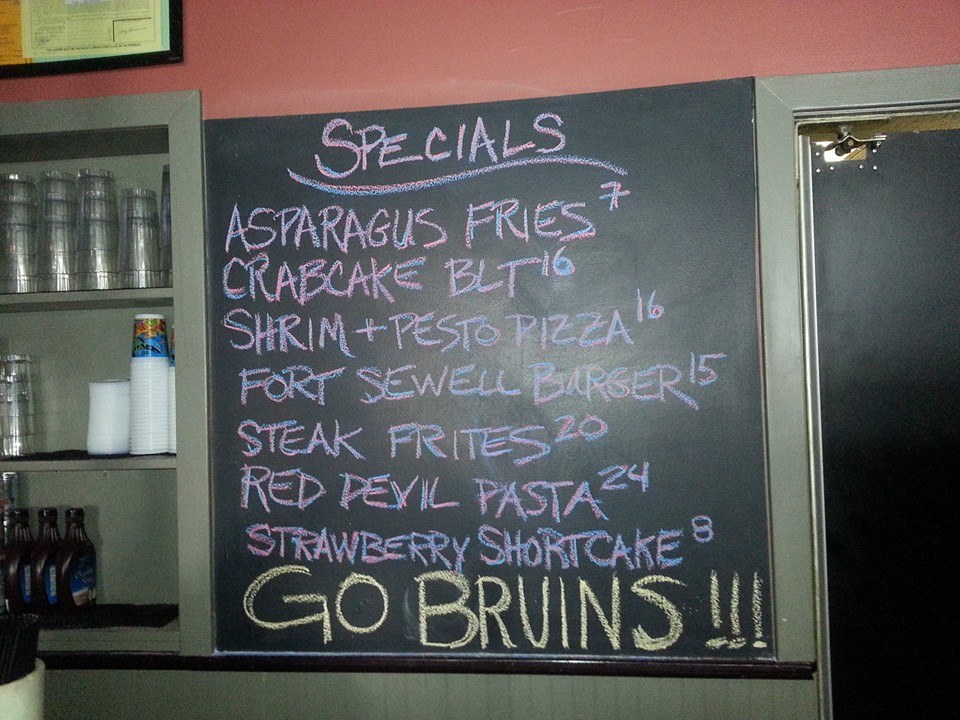 SPECIALS
ASPARAGUS FRIES 7
CRABCAKE BLT 16
SHRIM + PESTO PIZZA 16
FORT SEWELL BURGER 15
STEAK FRITES 20
RED DEVIL PASTA 24
STRAWBERRY SHORTCAKE 8
GO BRUINS !!!!